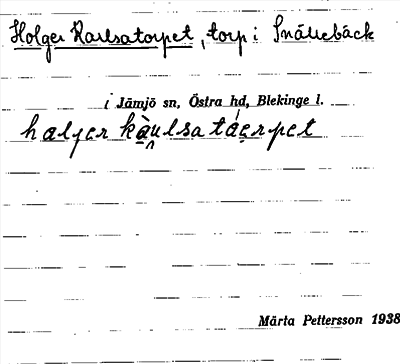 Holger Karlsatorpet, torp i Snällebäck
i Jämjö sn, Östra hd, Blekinge l.
Märta Pettersson 1938